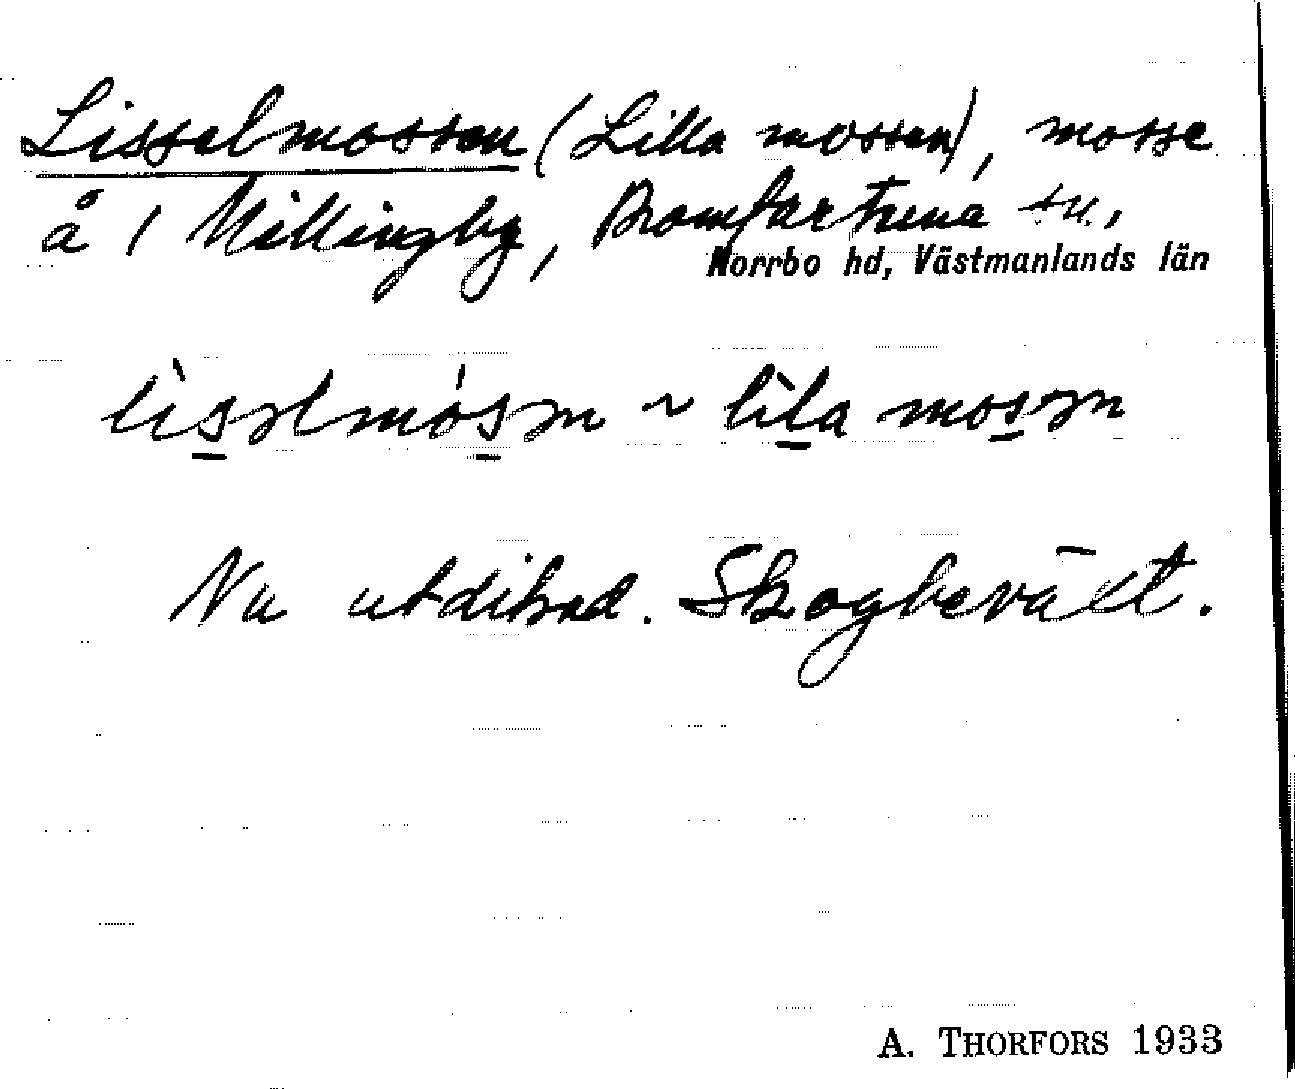 Lisselmossen (Lilla mossen), mosse
å 1 Millingby, Romfartuna sn,
Norrbo hd, Västmanlands län
lìsəlmósən ~ lìla mosən
Nu utdikad. Skogbeväxt.
A. THORFORS 1933